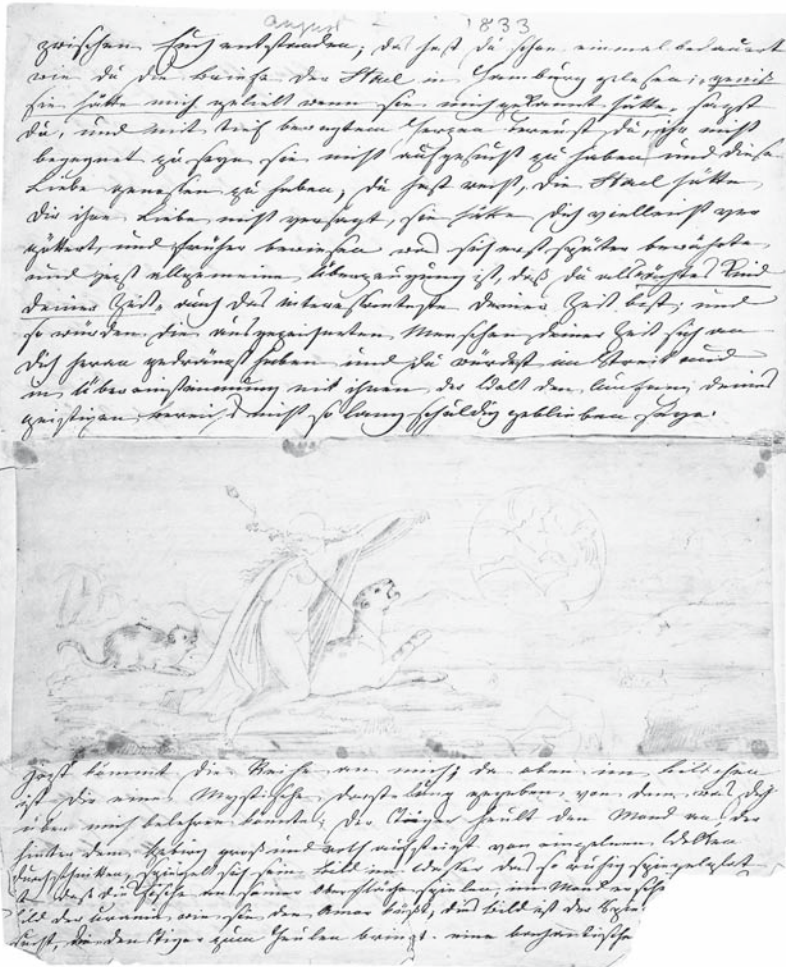 august 1833
zwischen Euch entstanden; das hast du schon einmal bedauert
wie du die Briefe der Stael in Hamburg gelesen; gewiß
sie hätte mich geliebt wenn sie mich gekannt hätte, sagst
du, und mit tief bewegtem Herzen bereust du, ihr nicht
begegnet zu seyn sie nicht aufgesucht zu haben und diese
Liebe genossen zu haben; du hast recht, die Stael hätte
dir ihre Liebe nicht versagt, sie hätte dich vielleicht ver
göttert, und früher bewiesen was sich erst später bewährte,
und jezt allgemeine Überzeugung ist, daß du als ächtes Kind
deiner Zeit, auch das Interessanteste deiner Zeit bist; und
so würden die ausgezeichneten Menschen deiner Zeit sich an
dich heran gedrängt haben und du würdest im Streit und
in Übereinstimmung mit ihnen der Welt den deines
geistigen bereichs nicht so lang schuldig geblieben seyn.
Jezt kömmt die Reihe an mich; da oben im Bildchen
ist dir eine Mystische darstellung gegeben von dem was dich
über mich belehren könnte; der Tiger heult den Mond an der
hinter dem Gebirg groß und roth aufsteigt von einzelnen Wolken
durchschnitten, spiegelt sich sein Bild im Wasser das so ruhig spiegelglat
ist daß die Fische an seiner Oberfläche spielen, im Mond
bild der Urania wie sie den Amor küßt, dies Bild ist der
sucht, die den Tiger zum heulen bringt. eine bachantische